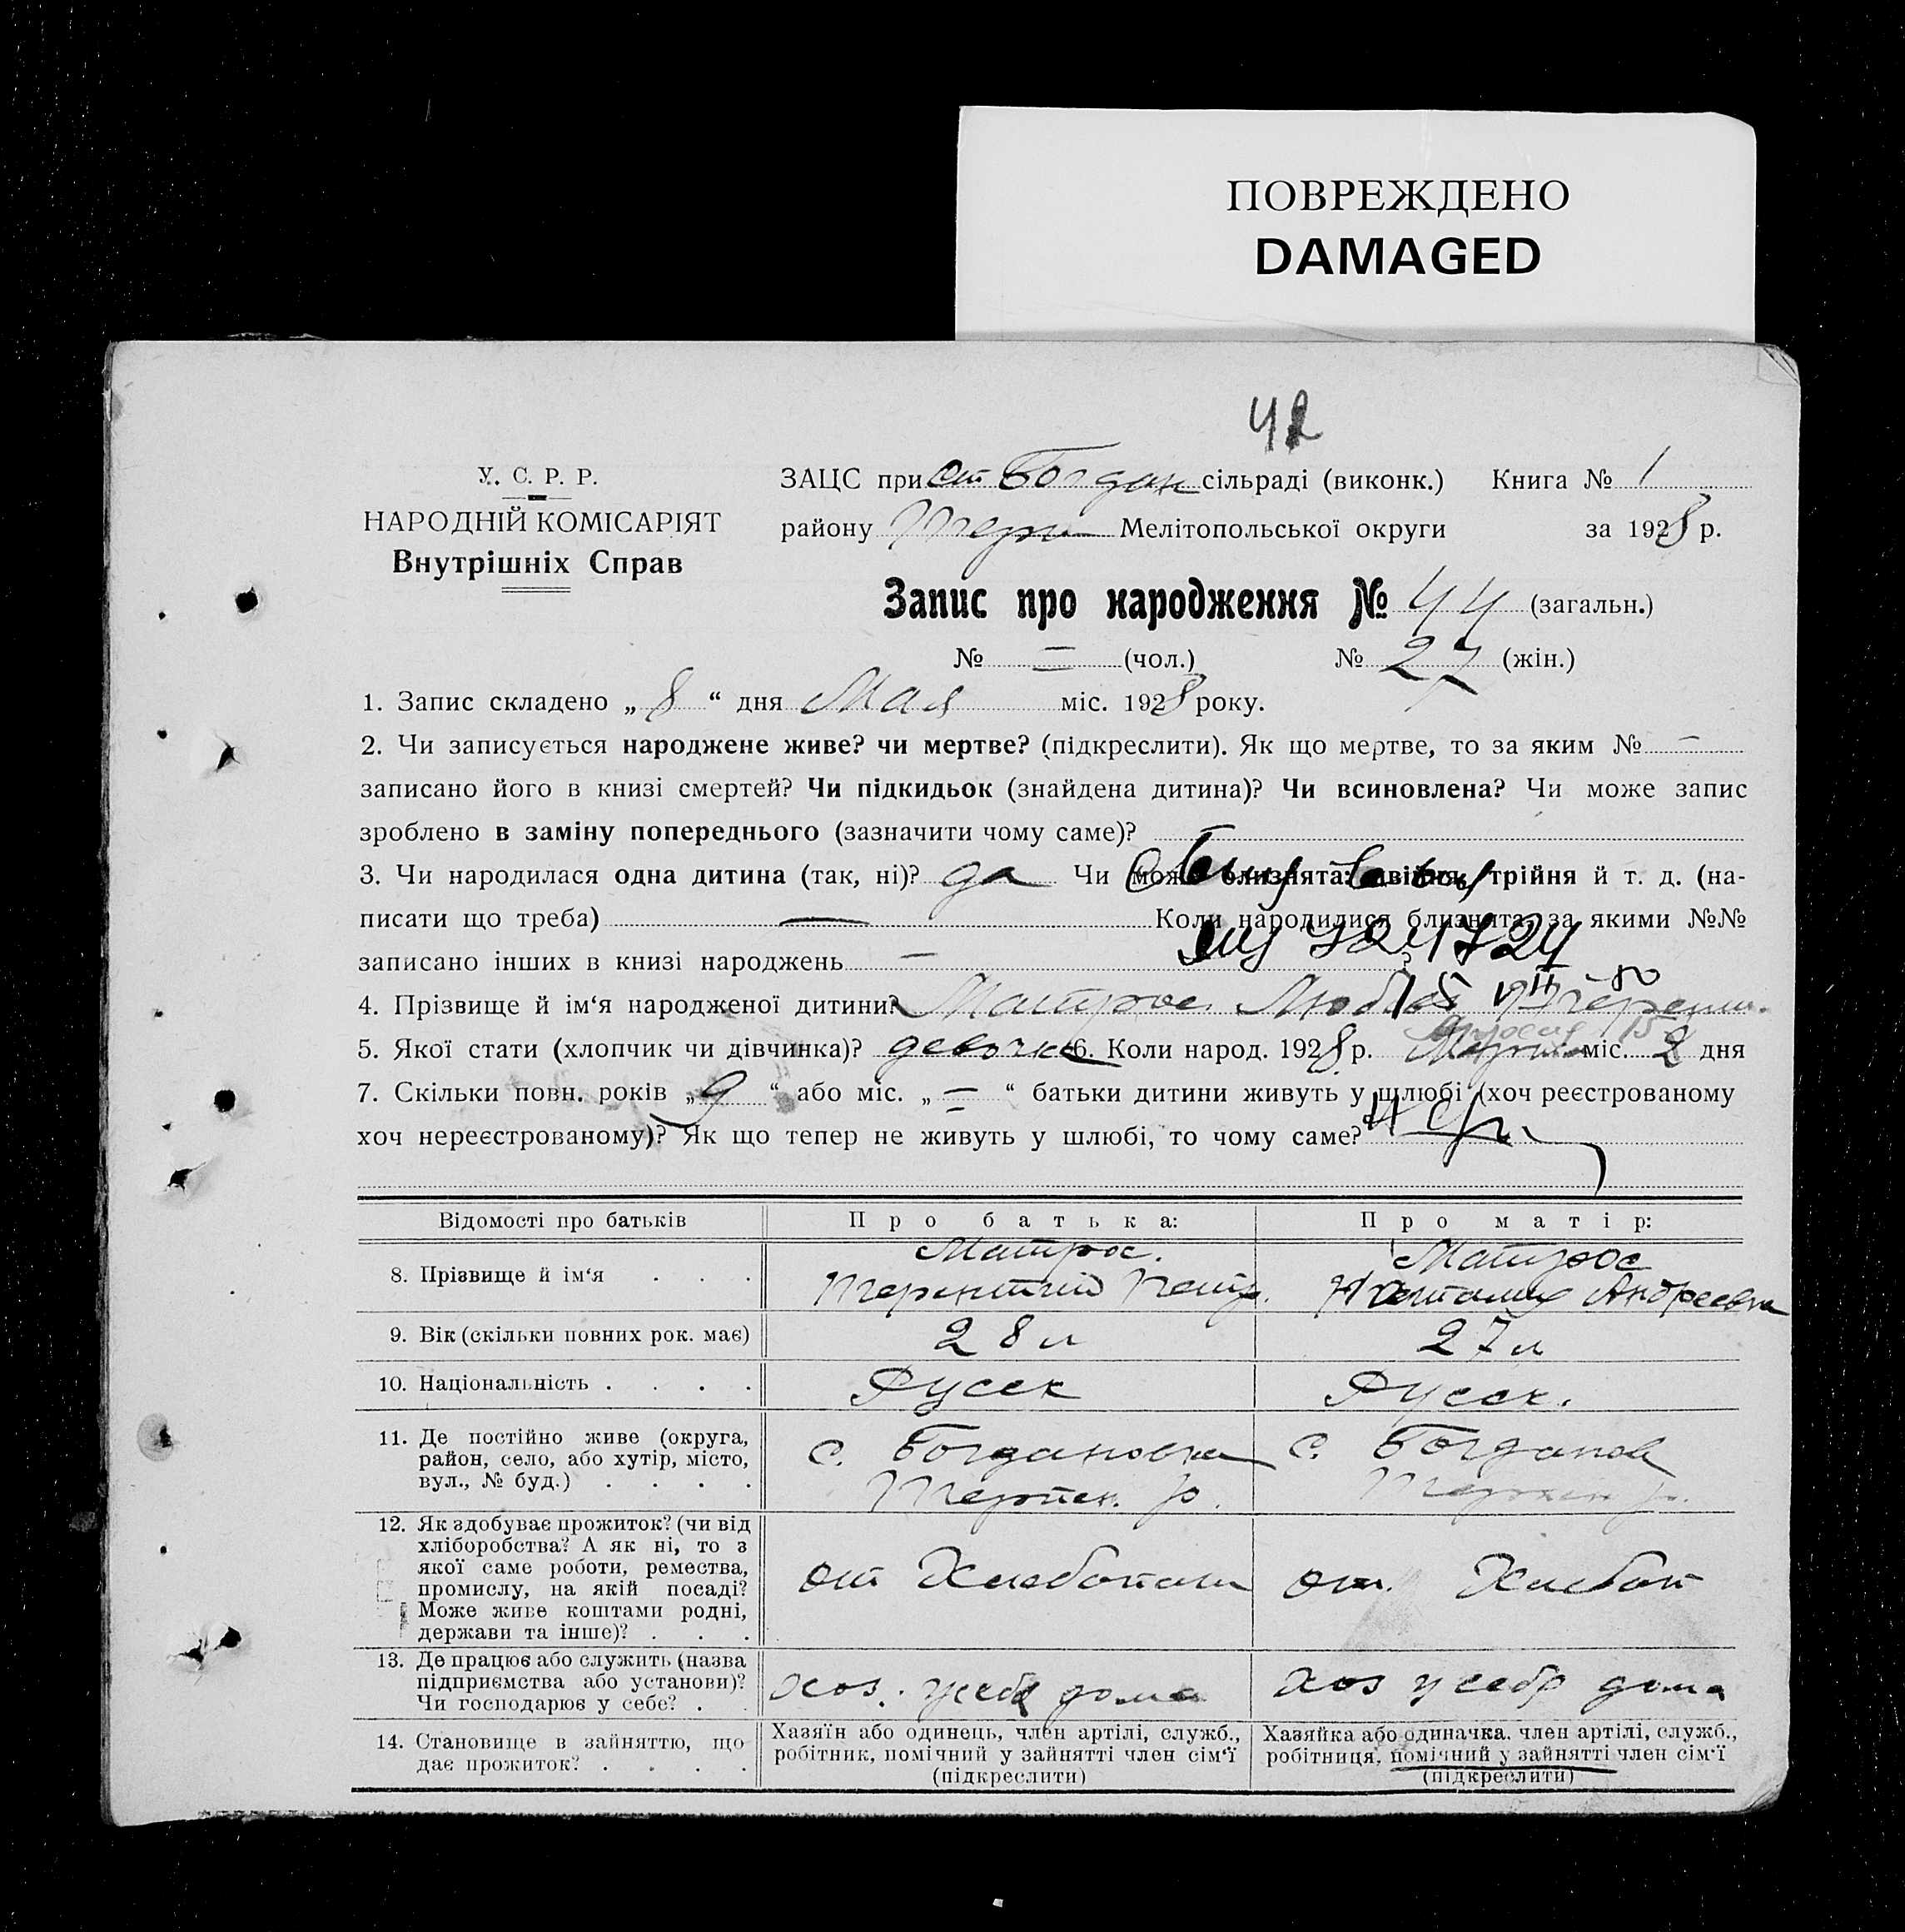 ПОВРЕЖДЕНО
DAMAGED
42
У. С. Р. Р.
НАРОДНІЙ КОМІСАРІЯТ
Внутрішніх Справ
ЗАЦС при ст Богдан сільраді (виконк.) Книга № 1
району Терп Мелітопольської округи за 1928 р.
Запис про народження № 44 (загальн.)
№ = (чол.) № 27 (жін.)
1. Запис складено „ 8 “ дня Мая міс. 1928 року.
2. Чи записується народжене живе? чи мертве? (підкреслити). Як що мертве, то за яким № -
записано його в книзі смертей? Чи підкидьок (знайдена дитина)? Чи всиновлена? Чи може запис
зроблено в заміну попереднього (зазначити чому саме)?
3. Чи народилася одна дитина (так, ні)? да Чи може близнята: двійня, трійня й т. д. (на-
писати що треба) — Коли народилися близнята, за якими №№
записано інших в книзі народжень — ?
4. Прізвище й ім‘я народженої дитини? Матрос
5. Якої стати (хлопчик чи дівчинка)? девочка 6. Коли народ. 1928 р. Марта міс. 2 дня
7. Скільки повн. років „ 9 “ або міс. „ = “ батьки дитини живуть у шлюбі (хоч реєстрованому
хоч нереєстрованому)? Як що тепер не живуть у шлюбі, то чому саме?
Відомості про батьків
Про батька:
Про матір:
8. Прізвище й ім‘я . . .
Матрос.
Терентий Петр.
Матрос
Наталия Андреевна
9. Вік (скільки повних рок. має)
28 л
27 л
10. Національність . . . .
Русск
Русск.
11. Де постійно живе (округа,
район, село, або хутір, місто,
вул., № буд.) . . . .
с. Богдановка
Терпен. р.
с. Богданов
Терпен р.
12. Як здобуває прожиток? (чи від
хліборобства? А як ні, то з
якої саме роботи, ремества,
промислу, на якій посаді?
Може живе коштами родні,
держави та інше)? . . .
от Хлебопаш
от. Хлебоп
13. Де працює або служить (назва
підприємства або установи)?
Чи господарює у себе? . .
хоз. у себя дома
хоз у себя дома
14. Становище в зайняттю, що
дає прожиток? . . . .
Хазяїн або одинець, член артілі, служб.,
робітник, помічний у зайнятті член сім‘ї
(підкреслити)
Хазяйка або одиначка, член артілі, служб.,
робітниця, помічний у зайнятті член сім‘ї
(підкреслити)